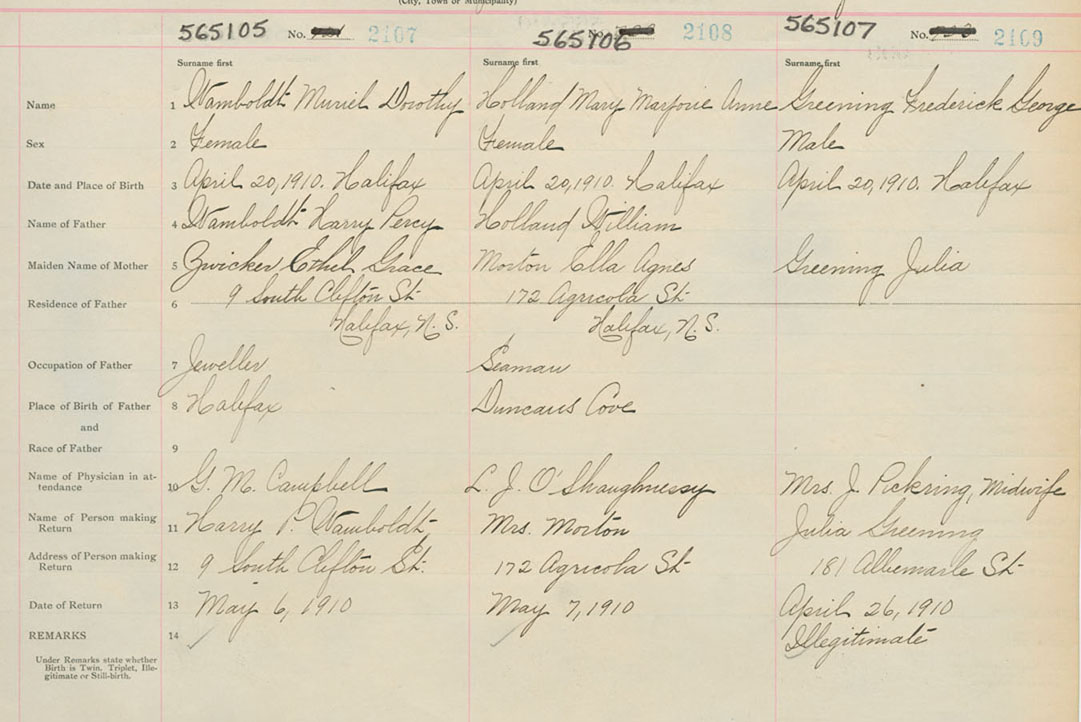 (City, Town or Municipality)
565105 No. 2107 565106 No. 2108 565107 No. 2109
Surname first Surname first Surname first
Name 1 Wamboldt Muriel Dorothy Holland Mary Marjorie Anne Greening Frederick George
Sex 2 Female Female Male
Date and Place of Birth 3 April 20, 1910. Halifax April 20, 1910. Halifax April 20, 1910. Halifax
Name of Father 4 Wamboldt Harry Percy Holland William
Maiden Name of Mother 5 Zwicker Ethel Grace Morton Ella Agnes Greening Julia
Residence of Father 6 9 South Clifton St 172 Agricola St
Halifax, N.S. Halifax, N.S.
Occupation of Father 7 Jeweller Seaman
Place of Birth of Father 8 Halifax Duncans Cove
and
Race of Father 9
Name of Physician in at-
tendance 10 G. M. Campbell L. J. O'Shaughnessy Mrs. J. Pickring, Midwife
Name of Person making
Return 11 Harry P. Wamboldt Mrs. Morton Julia Greening
Address of Person making
Return 12 9 South Clifton St. 172 Agricola St 181 Albemarle St
Date of Return 13 May 6, 1910 May 7, 1910 April 26, 1910
REMARKS 14 Illegitimate
Under Remarks state whether
Birth is Twin. Triplet, Ille-
gitimate or Still-birth.